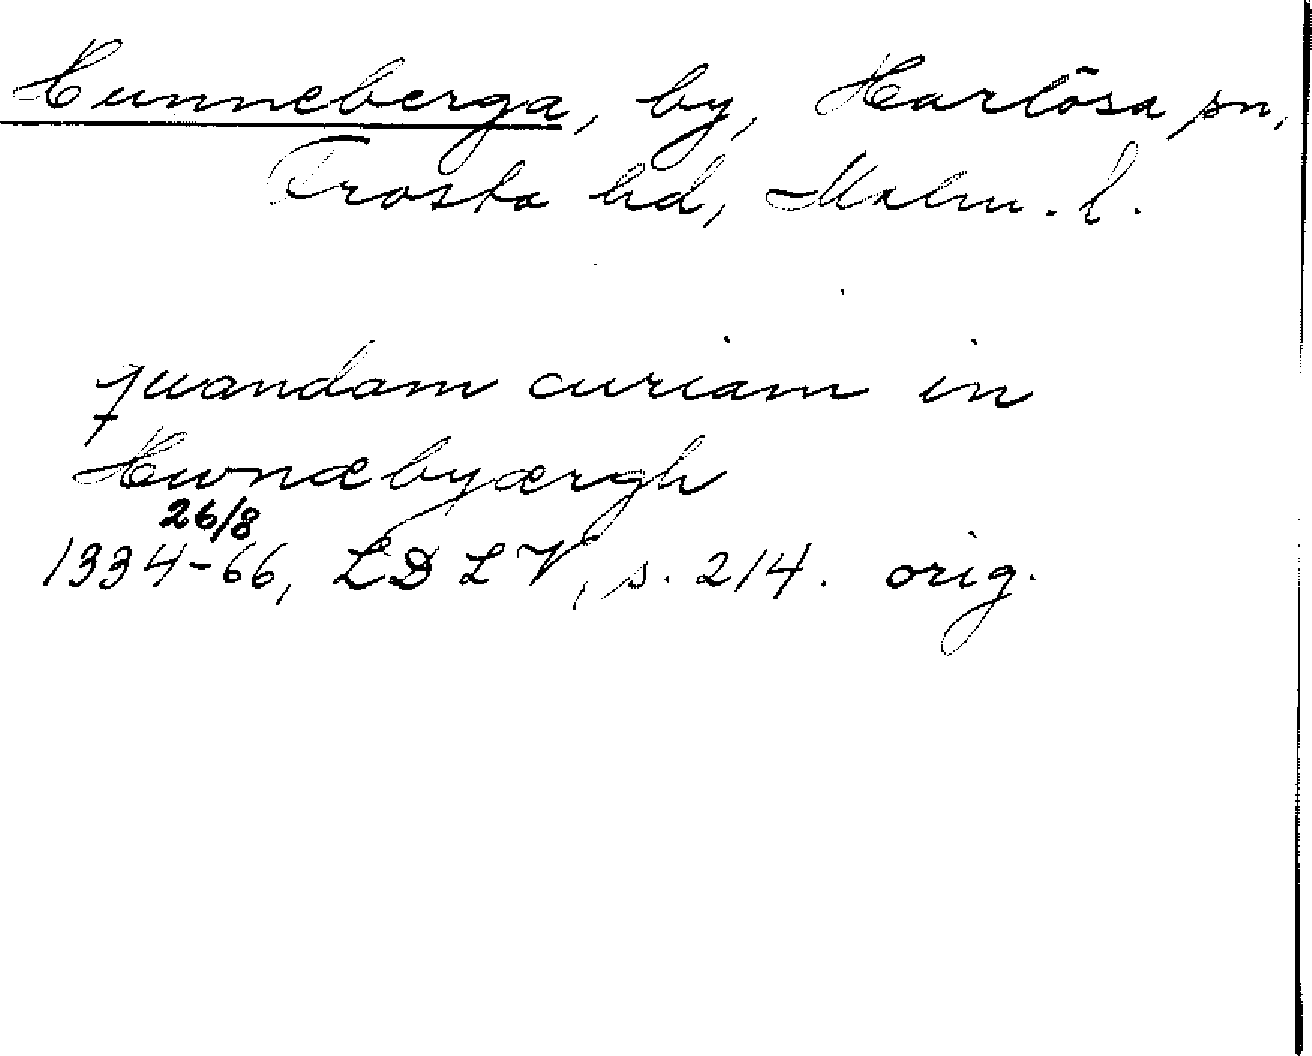 Hunneberga, by, Harlösa sn,
Frosta hd, Malm. l.
quandam curiam in
Hwnæbyærgh
26/8
1334-66, LDLV, s. 214. orig.